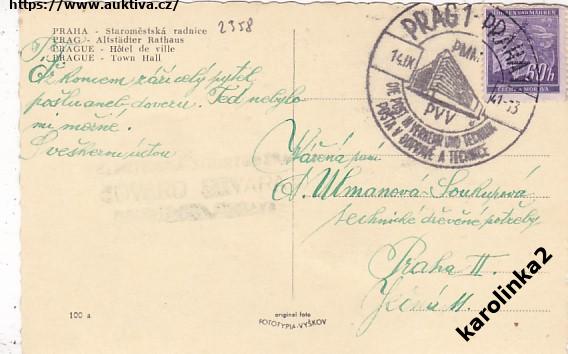 https://www.auktiva.cz/
2358
PRAHA - Staroměstská radnice
PRAG - Altstädter Rathaus
PRAGUE - Hôtel de ville
PRAGUE - Town Hall
koncem září celý pytel
pošlu anebo dovezu. Teď nebylo
mi možné.
S veškerou úctou
PRAG 1 - PRAHA
14.IX
41-13
PMM
PVV
DIE POST IN VERKEHR UND TECHNIK
POŠTA V DOPRAVĚ A TECHNICE
BÖHMEN UND MÄHREN
60h
ČECHY A MORAVA
Vážená paní
A. Ulmanová-Soukupová
technické dřevěné potřeby
Praha II.
Ječná 11.
100 a
original foto
FOTOTYPIA-VYŠKOV
karolinka2